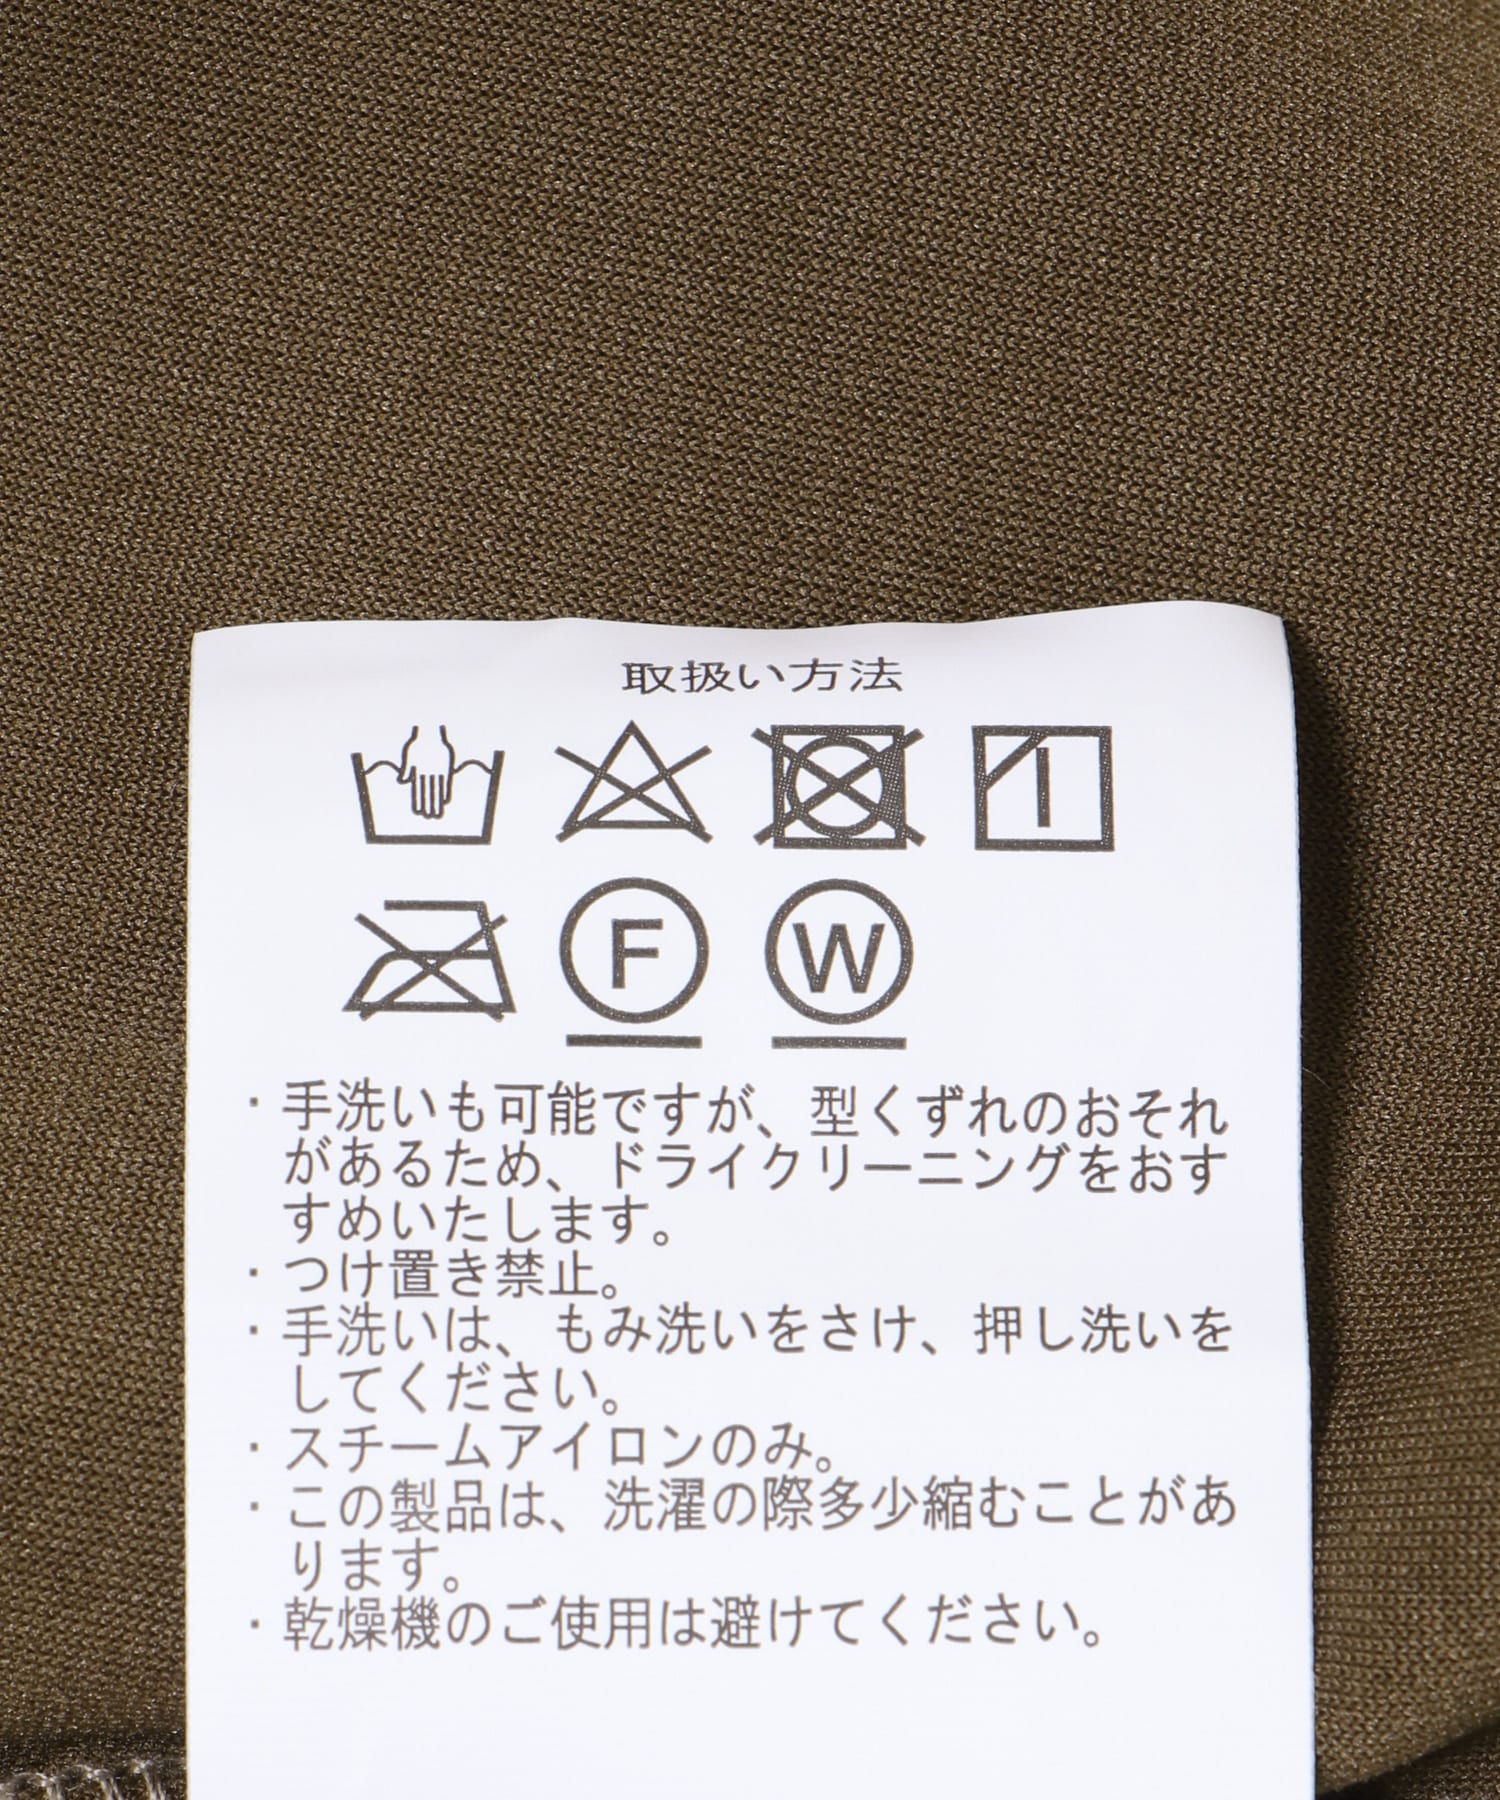 取扱い方法
F W
・手洗いも可能ですが、型くずれのおそれ
があるため、ドライクリーニングをおす
すめいたします。
・つけ置き禁止。
・手洗いは、もみ洗いをさけ、押し洗いを
してください。
・スチームアイロンのみ。
・この製品は、洗濯の際多少縮むことがあ
ります。
・乾燥機のご使用は避けてください。